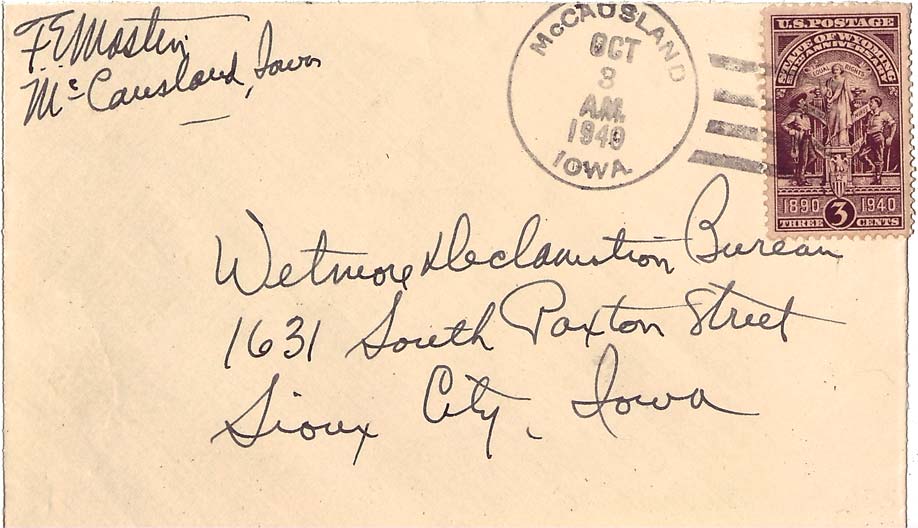 F. E. Mosten
Mc Causland, Iowa
McCAUSLAND
OCT
3
A.M.
1940
IOWA
U.S. POSTAGE
STATE OF WYOMING
50th ANNIVERSARY
EQUAL RIGHTS
1890 3 1940
THREE CENTS
Wetmore Declamation Bureau
1631 South Paxton Street
Sioux City, Iowa